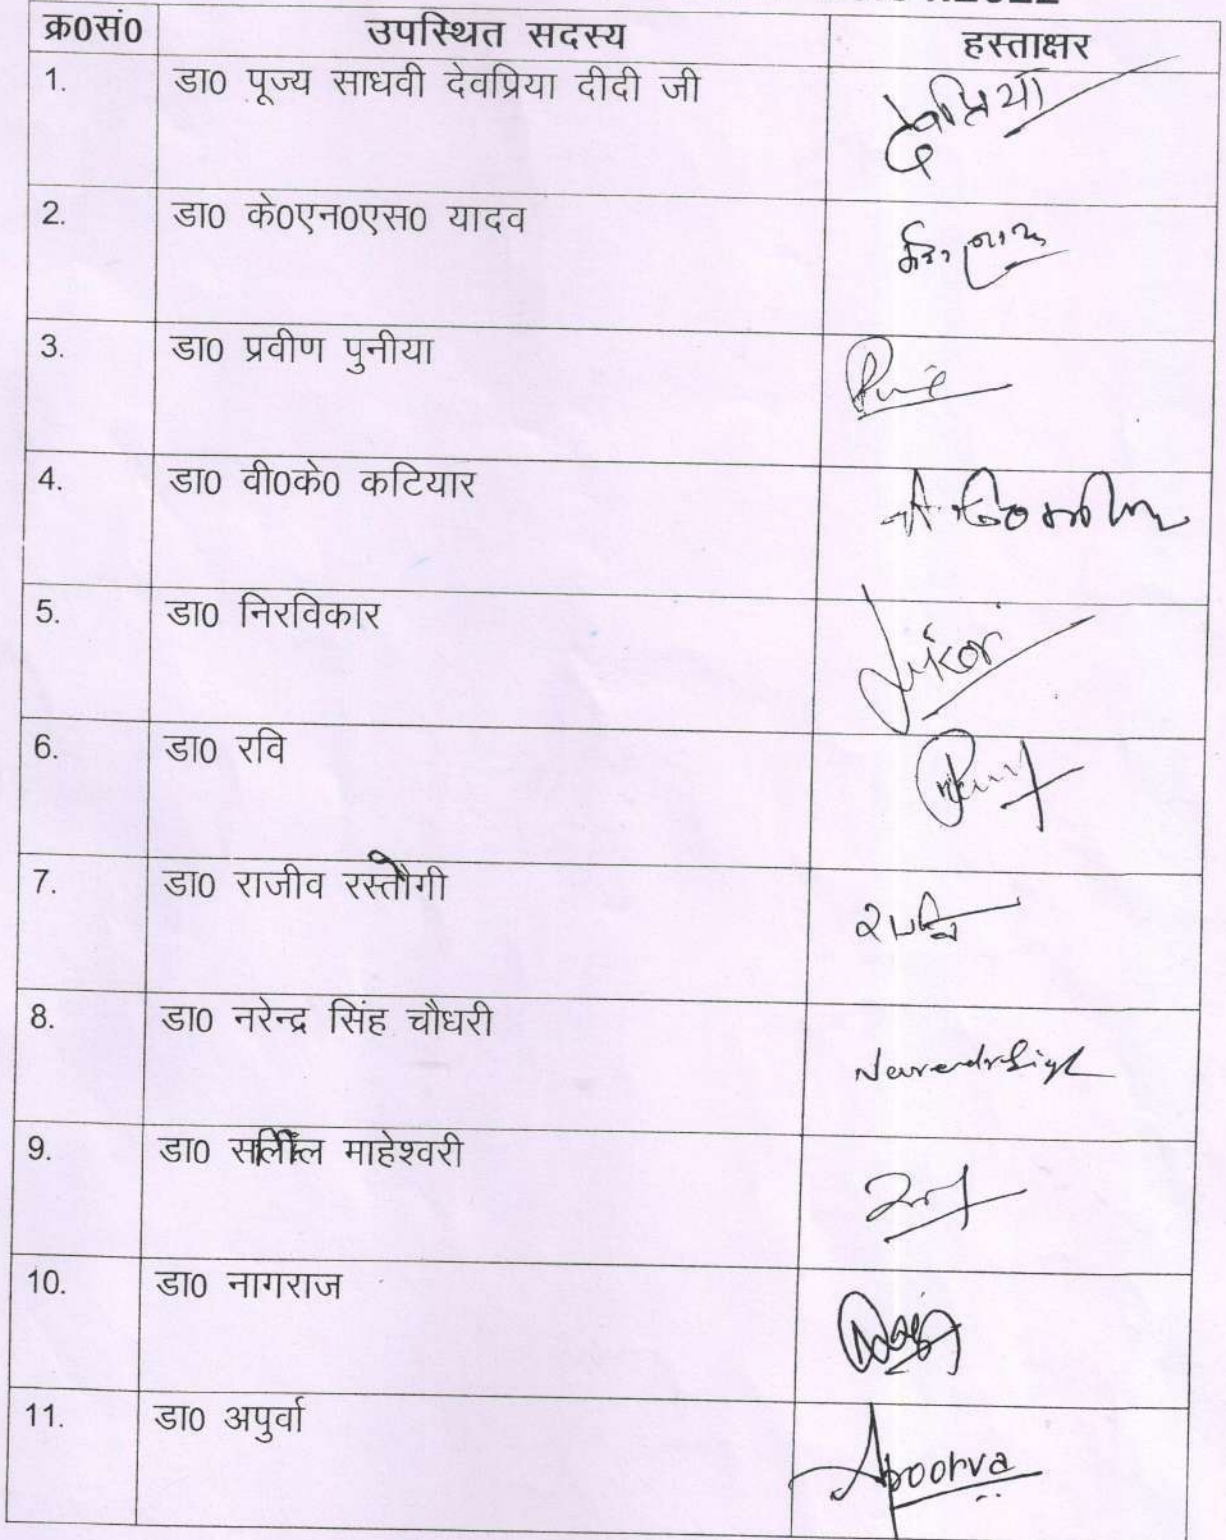 क्र0सं0 उपस्थित सदस्य हस्ताक्षर
1. डा0 पूज्य साधवी देवप्रिया दीदी जी देवप्रिया
2. डा0 के0एन0एस0 यादव
3. डा0 प्रवीण पुनीया
4. डा0 वी0के0 कटियार
5. डा0 निरविकार
6. डा0 रवि
7. डा0 राजीव रस्तोगी
8. डा0 नरेन्द्र सिंह चौधरी Narendra Singh
9. डा0 सलिल माहेश्वरी
10. डा0 नागराज
11. डा0 अपुर्वा Apoorva